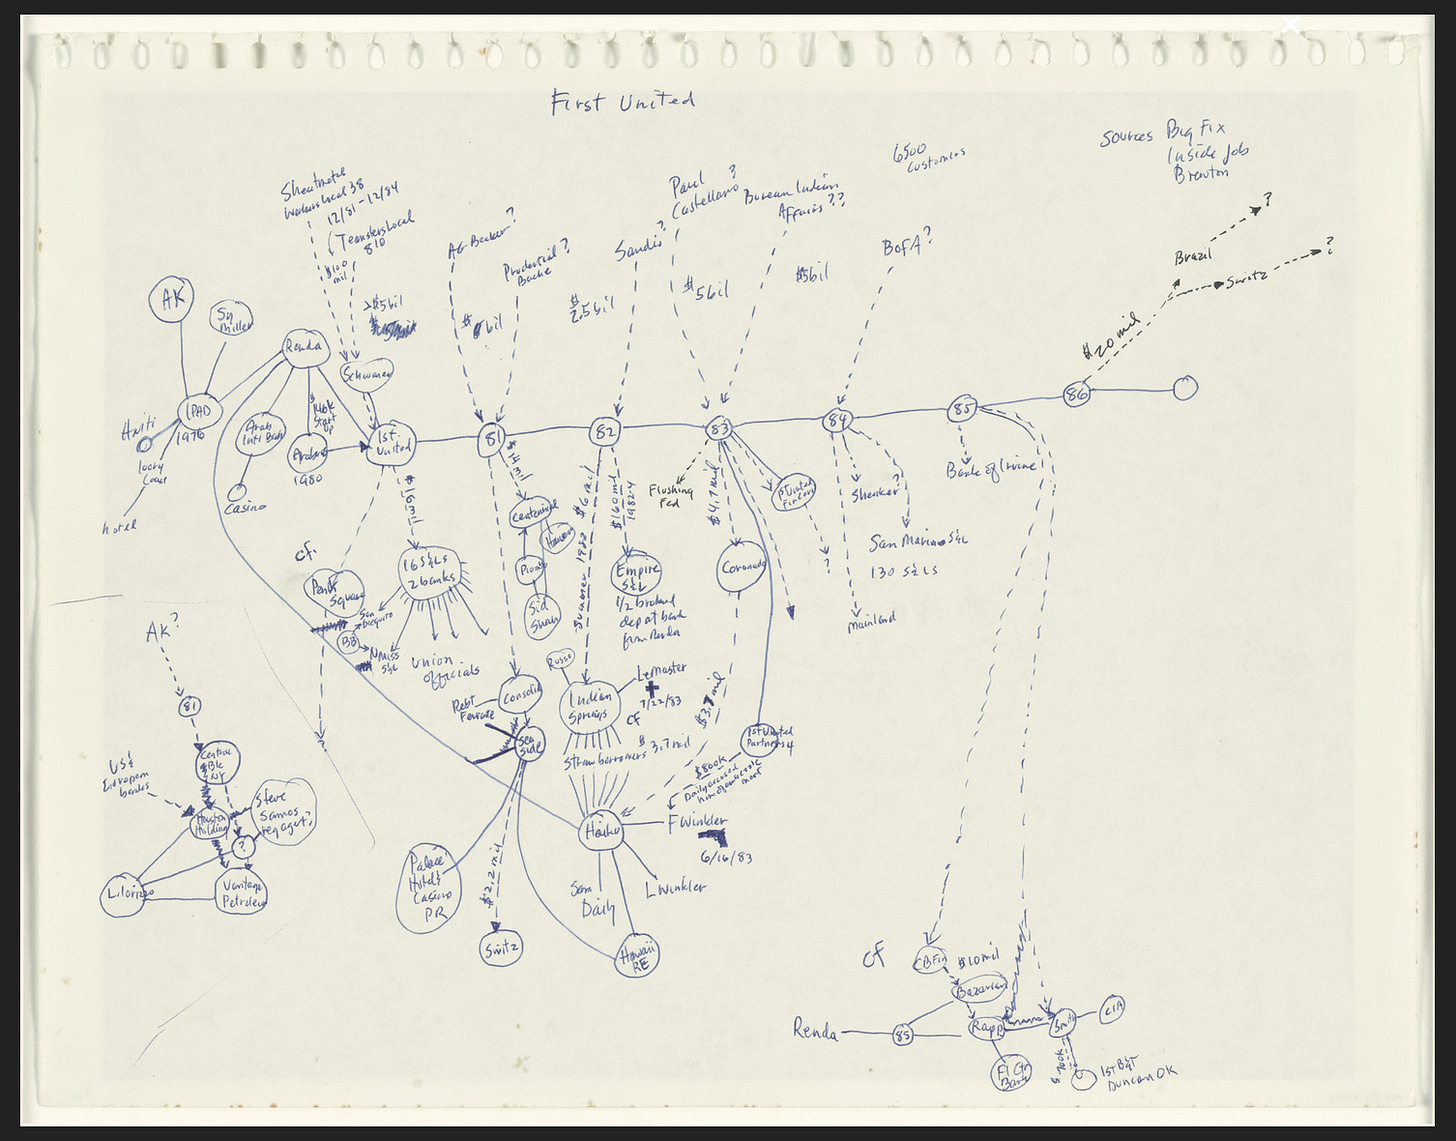 First United
Sources Big Fix
Inside Job
Brewton
6500
Customers
Sheetmetal
Workers Local 38
12/81-12/84
Teamsters Local
810
$100
mil
$5bil
AG Becker?
Prudential?
Bache
$ bil
Sandis?
$
2.5bil
Paul ?
Castellano
$5bil
Bureau Indian
Affairs??
$5bil
BofA?
Brazil
?
Switz
?
$20 mil
AK
Sy
Miller
Renda
Schwimmer
IPAD
1976
Haiti
Ivory
Coast
hotel
Arab
Intl Bank
Casino
$46k
Start
up
Arabras
1980
1st
United
81
82
83
84
85
86
$16mil
16 S&Ls
2 banks
cf.
Penn
Square
San
Marquito
BB
N Miss
S&L
Union
officials
$14 mil
Centennial
Hansen
Pionto
Sid
Shah
Summer 1982 $6 mil
$160mil
1982-4
Empire
S&L
1/2 brokered
dep at bank
from Renda
Flushing
Fed
$4.7 mil
Coronado
1st United
Fin Corp
?
Shenker?
San Marino S&L
130 S&Ls
Mainland
Bank of Irvine
Consolid
Robt
Ferrante
Sea
side
Russo
Indian
Springs
Lemaster
7/22/83
cf
$3.7 mil
Straw borrowers
$3.7 mil
1st United
Partners 4
$800k
Daily accused
F Winkler
6/16/83
L Winkler
Haiku
Sam
Daily
Hawaii
RE
Palace
Hotel &
Casino
PR
$2.2 mil
Switz
AK?
81
Central
Bk
NY
US &
European
banks
Houston
Holding
Steve
Samos
reg agent?
?
Lilorizzo
Vantage
Petroleum
cf
CB Fin
$10mil
Bazarian
Renda
85
Rapp
Smith
CIA
Fl Ctr
Bank
$ 700k
1st B&T
Duncan OK